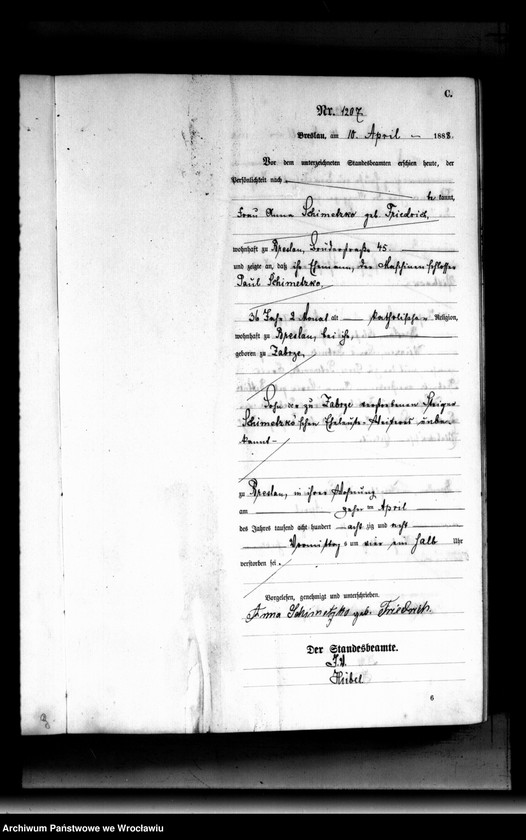 C.
Nr. 1207
Breslau, am 10. April 1888.
Vor dem unterzeichneten Standesbeamten erschien heute, der
Persönlichkeit nach
be kannt,
Frau Anna Schimetzko geb. Friedrich,
wohnhaft zu Breslau, Bruderstraße 45
und zeigte an, daß ihr Ehemann, der Maschinenschlosser
Paul Schimetzko,
36 Jahr 2 Monat alt katholischer Religion,
wohnhaft zu Breslau, bei ihr,
geboren zu Zabrze,
Sohn der zu Zabrze verstorbenen Steiger
Schimetzko'schen Eheleute. Weiteres unbe-
kannt
zu Breslau, in ihrer Wohnung
am zehnten April
des Jahrs tausend acht hundert acht zig und acht
Vormittags um vier ein halb Uhr
verstorben sei.
Vorgelesen, genehmigt und unterschrieben.
Anna Schimetzko geb. Friedrich.
Der Standesbeamte.
I.V.
6
Archiwum Państwowe we Wrocławiu